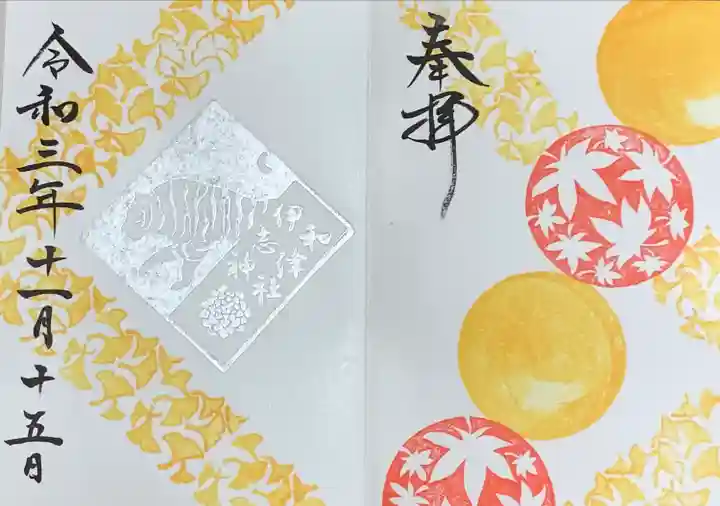 奉拝
伊和
志津
神社
令和三年十一月十五日